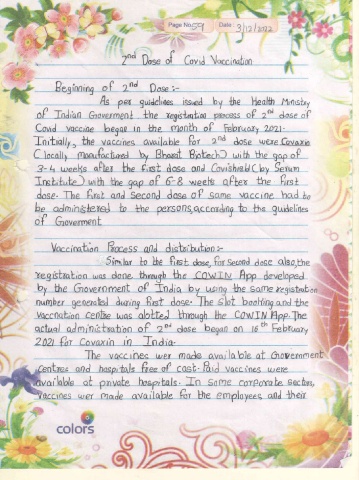 Page No. 59 Date: 3/12/2022
2nd Dose of Covid Vaccination
Beginning of 2nd Dose:-
As per guidelines issued by the Health Ministry
of Indian Goverment the registration process of 2nd dose of
Covid vaccine began in the month of February 2021.
Initially, the vaccines available for 2nd dose were Covaxin
(locally manufactured by Bharat Biotech) with the gap of
3-4 weeks after the first dose and Covishield (by Serum
Institute) with the gap of 6-8 weeks after the first
dose. The first and second dose of same vaccine had to
be administered to the persons, according to the guidelines
of Goverment
Vaccination Process and distribution:-
Similar to the first dose, for second dose also, the
registration was done through the COWIN App developed
by the Government of India by using the same registration
number generated during first dose. The slot booking and the
vaccnation centre was alotted through the COWIN App. The
actual administration of 2nd dose began on 16th February
2021 for Covaxin in India.
The vaccines wer made available at Government
centres and hospitals free of cost. Paid vaccines were
available at private hospitals. In some corporate sectors,
vaccines wer made available for the employees and their
colors